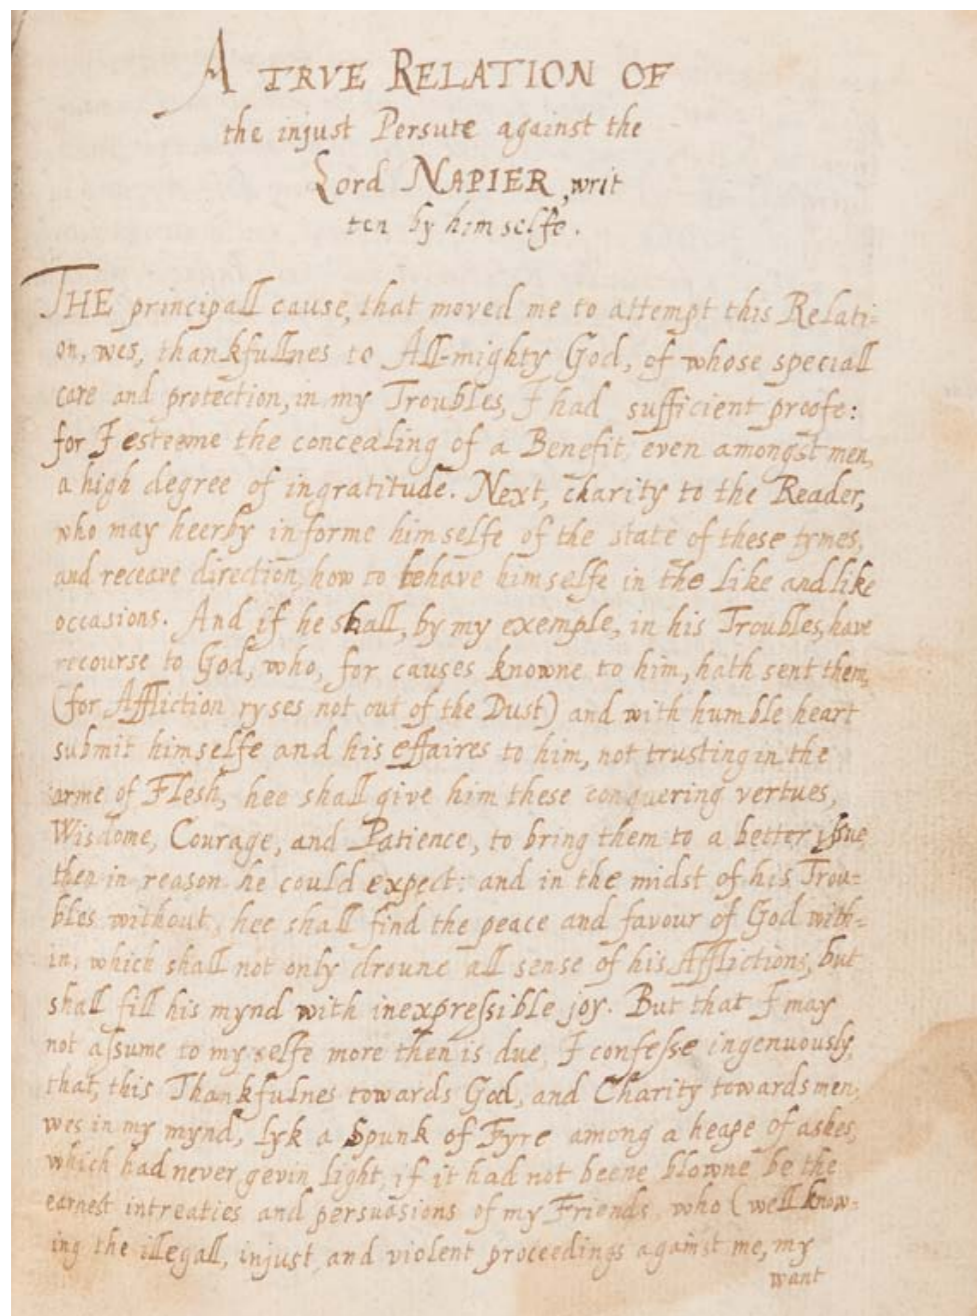 A TRVE RELATION OF
the injust Persute against the
Lord NAPIER, writ
ten by himselfe.
THE principall cause, that moved me to attempt this Relati=
on, wes, thankfullnes to All-mighty God, of whose speciall
care and protection, in my Troubles, I had sufficient proofe:
for I esteeme the concealing of a Benefit, even amongst men,
a high degree of ingratitude. Next, charity to the Reader,
who may heerby informe himselfe of the state of these tymes,
and receave direction, how to behave himselfe in the like and like
occasions. And if he shall, by my exemple, in his Troubles, have
recourse to God, who, for causes knowne to him, hath sent them,
(for Affliction ryses not out of the Dust) and with humble heart
submit himselfe and his effaires to him, not trusting in the
arme of Flesh, hee shall give him these conquering vertues,
Wisdome, Courage, and Patience, to bring them to a better issue
then in reason he could expect: and in the midst of his Trou=
bles without, hee shall find the peace and favour of God with=
in, which shall not only droune all sense of his Afflictions, but
shall fill his mynd with inexpressible joy. But that I may
not assume to my selfe more then is due, I confesse ingenuously,
that, this Thankfulnes towards God, and Charity towards men,
wes in my mynd, lyk a Spunk of Fyre among a heape of ashes,
which had never gevin light, if it had not beene blowne be the
earnest intreaties and persuasions of my Friends, who (well know=
ing the illegall, injust and violent proceedings against me, my
want